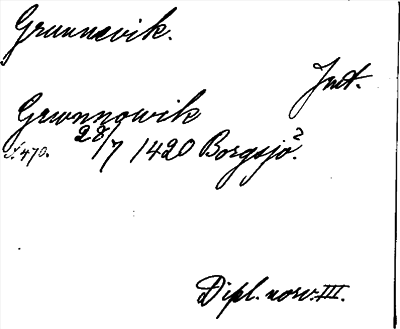 Grunnevik.
Jmt.
Grwnnowik
28/7 1420 Borgsjö?
N:470.
Dipl. norv. III.